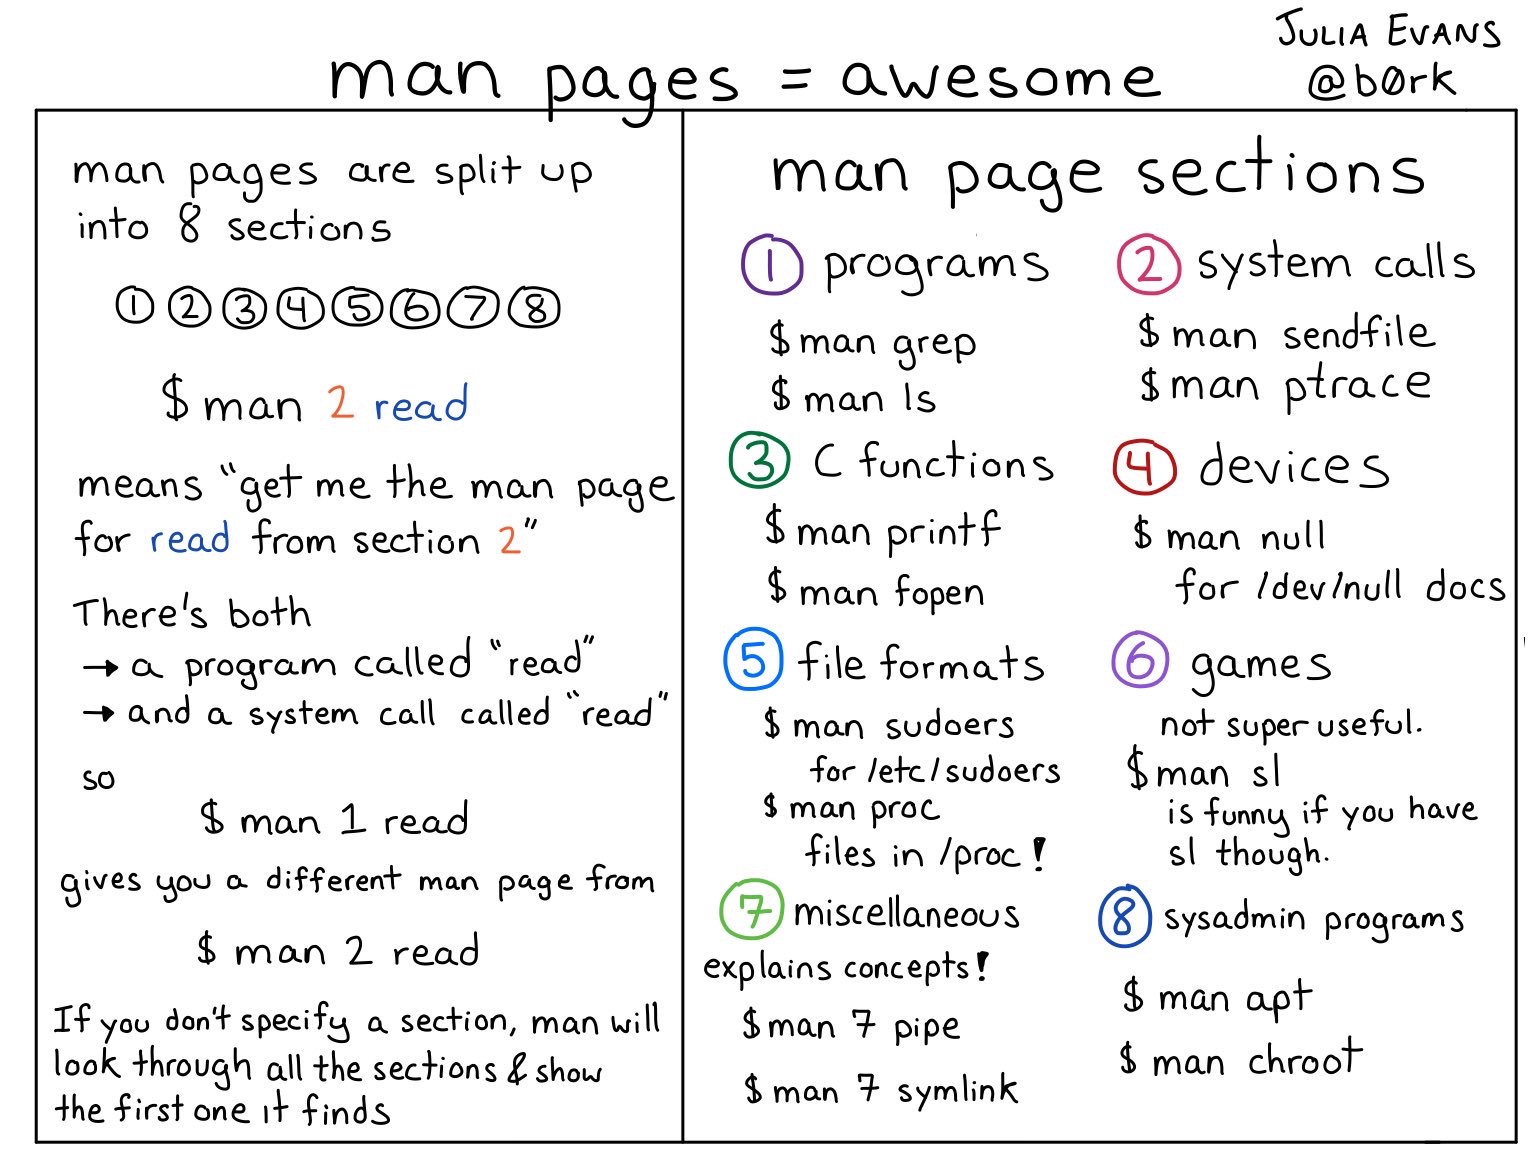 JULIA EVANS
@b0rk
man pages = awesome
man pages are split up
into 8 sections
1 2 3 4 5 6 7 8
$ man 2 read
means "get me the man page
for read from section 2"
There's both
→ a program called "read"
→ and a system call called "read"
so
$ man 1 read
gives you a different man page from
$ man 2 read
If you don't specify a section, man will
look through all the sections & show
the first one it finds
man page sections
1 programs
$ man grep
$ man ls
2 system calls
$ man sendfile
$ man ptrace
3 C functions
$ man printf
$ man fopen
4 devices
$ man null
for /dev/null docs
5 file formats
$ man sudoers
for /etc/sudoers
$ man proc
files in /proc!
6 games
not super useful.
$ man sl
is funny if you have
sl though.
7 miscellaneous
explains concepts!
$ man 7 pipe
$ man 7 symlink
8 sysadmin programs
$ man apt
$ man chroot